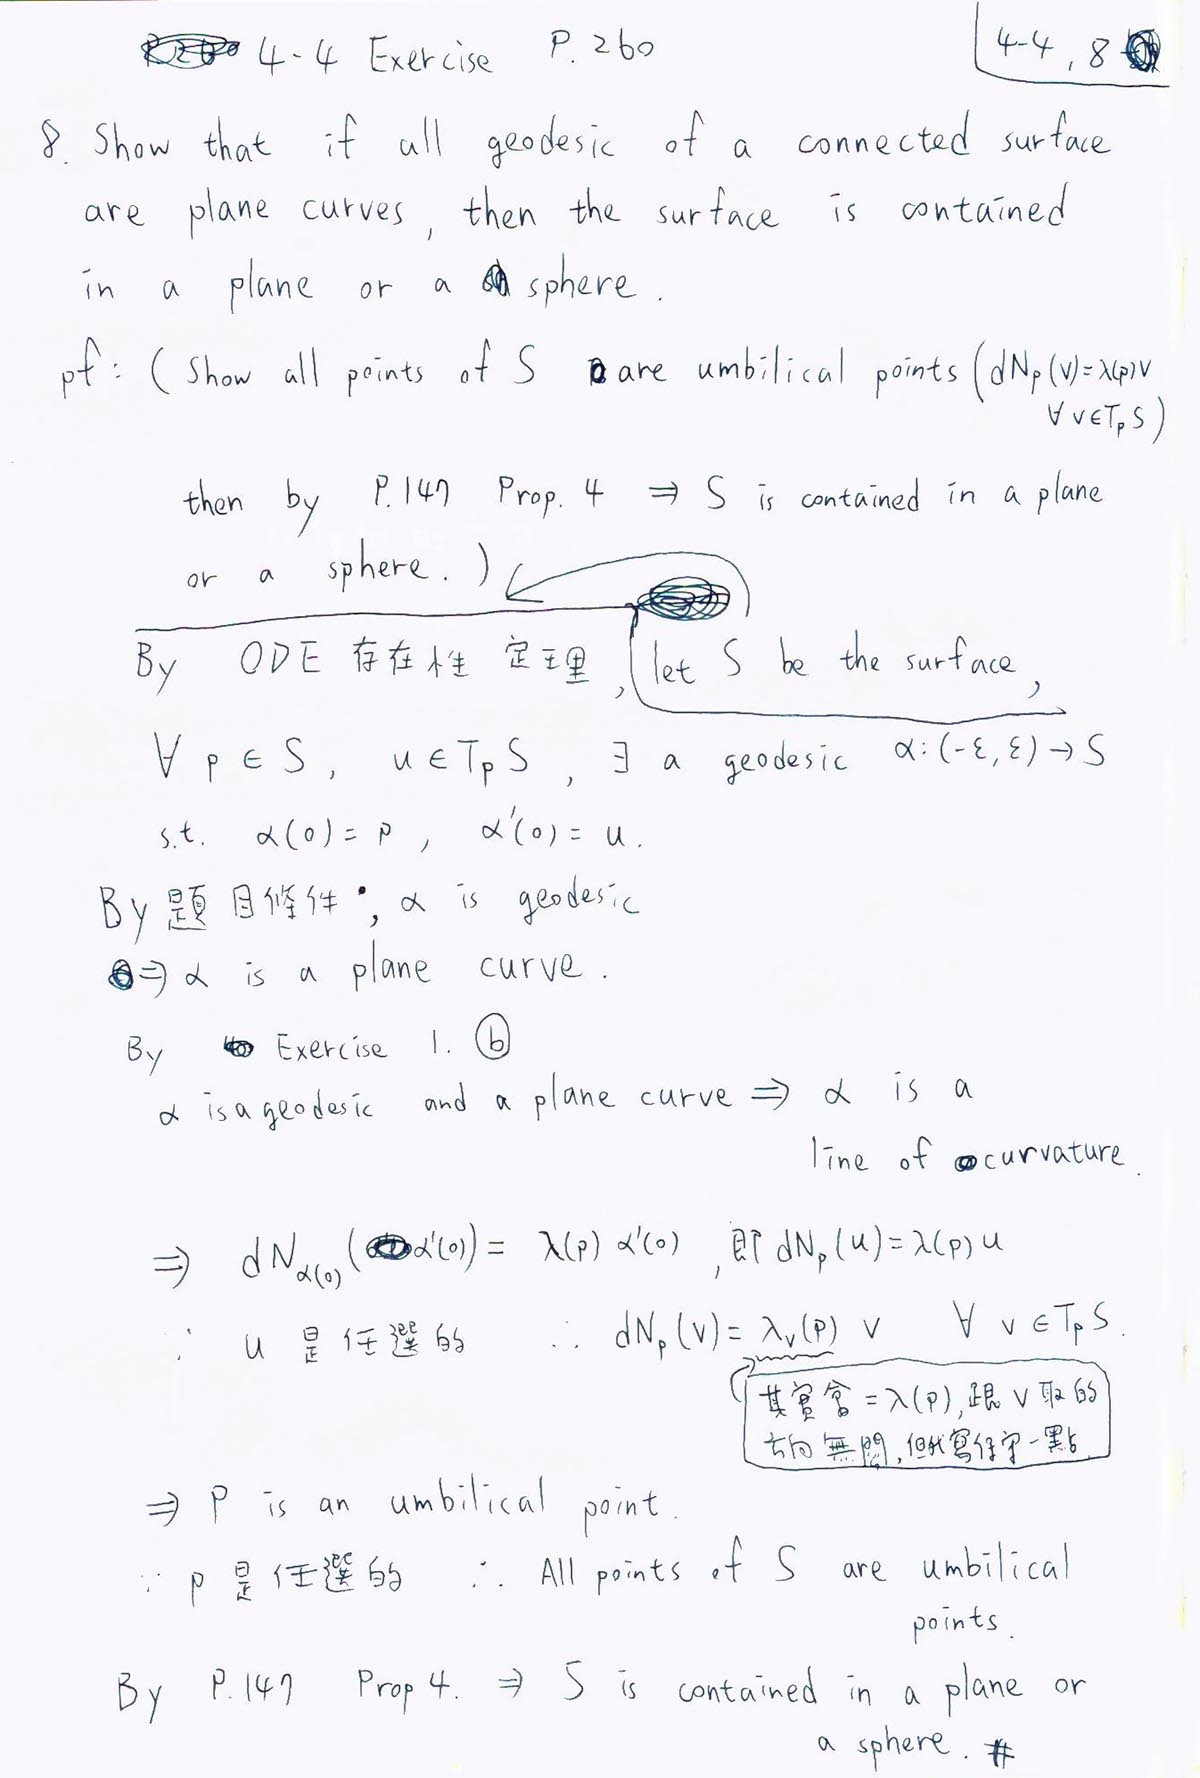 4-4 Exercise P. 260
4-4, 8
8. Show that if all geodesic of a connected surface
are plane curves, then the surface is contained
in a plane or a sphere.
pf: (Show all points of S are umbilical points (dNp(v)=λ(p)v
∀ v∈TpS)
then by P.147 Prop. 4 ⇒ S is contained in a plane
or a sphere.)
By ODE 存在性 定理, let S be the surface,
∀ p ∈ S, u ∈ TpS, ∃ a geodesic α: (-ε, ε) → S
s.t. α(0) = p, α'(0) = u.
By 題目條件, α is geodesic
⇒ α is a plane curve.
By Exercise 1. ⓑ
α is a geodesic and a plane curve ⇒ α is a
line of curvature.
⇒ dNα(0)(α'(0)) = λ(p) α'(0), 即 dNp(u)=λ(p)u
∵ u 是任選的 ∴ dNp(v) = λv(p) v ∀ v∈TpS.
其實會=λ(p), 跟 v 取的
方向無關, 但我寫保守一點
⇒ P is an umbilical point.
∵ p 是任選的 ∴ All points of S are umbilical
points.
By P.147 Prop 4. ⇒ S is contained in a plane or
a sphere. #